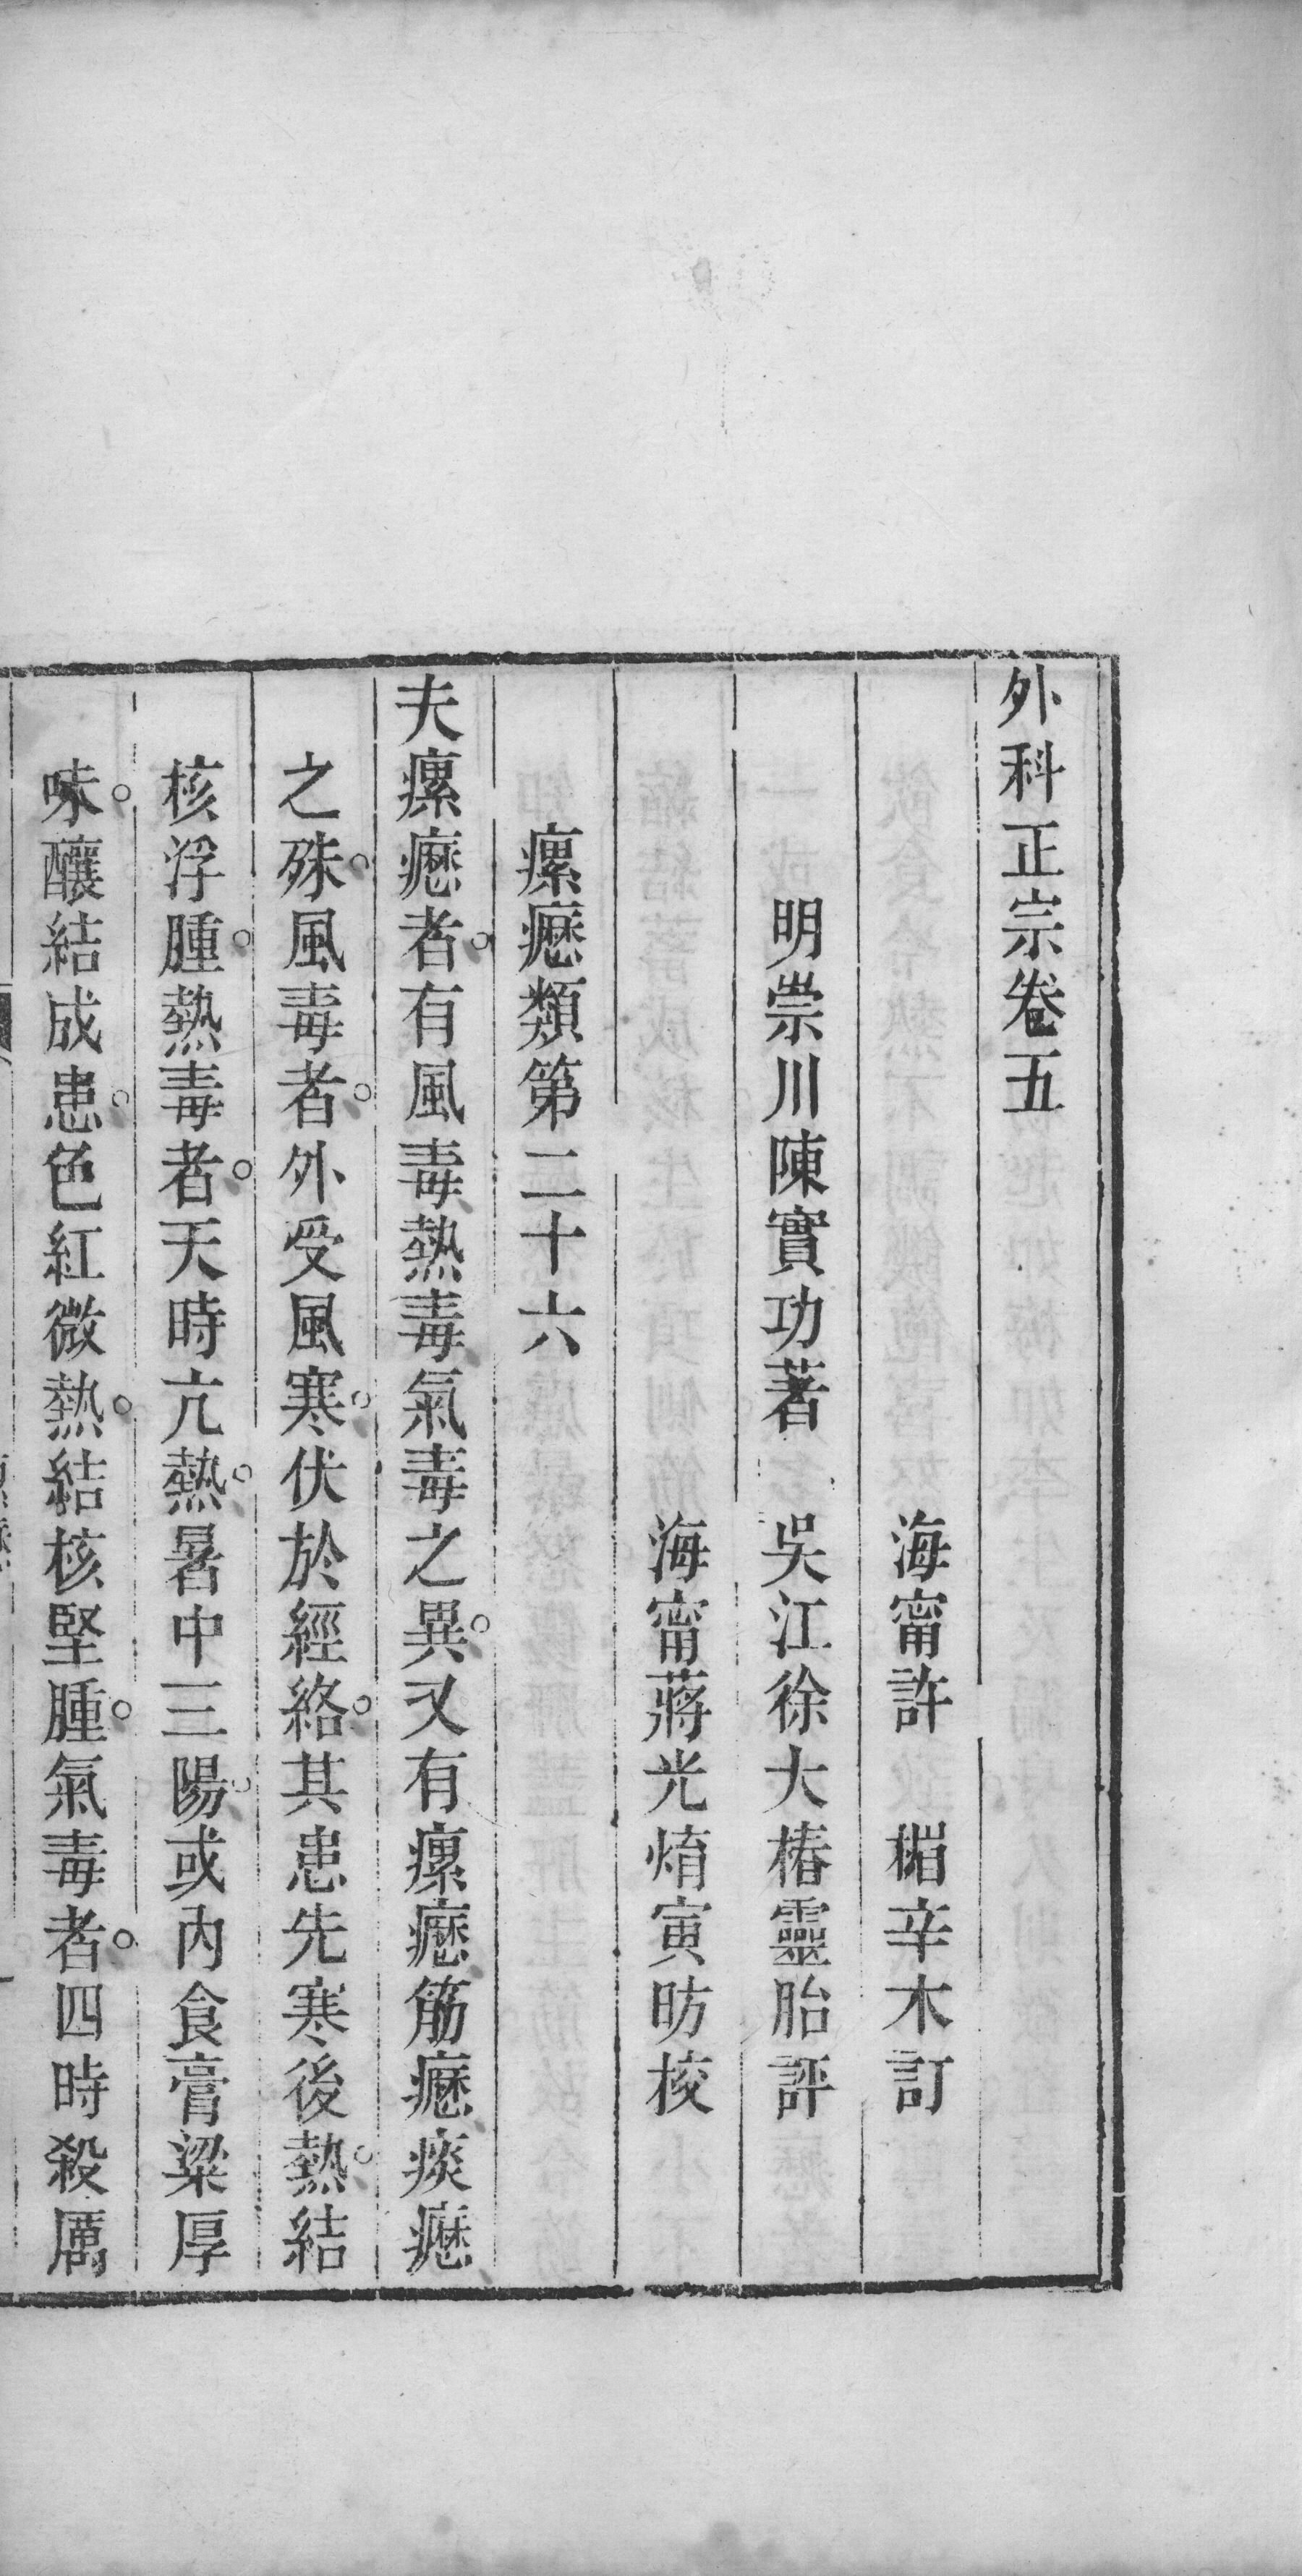 外科正宗卷五
海甯許　楣辛木訂
明崇川陳實功著　吳江徐大椿靈胎評
海甯蔣光焴寅昉校
瘰癧類第二十六
夫瘰癧者。有風毒熱毒氣毒之異。又有瘰癧筋癧痰癧
之殊。風毒者。外受風寒。伏於經絡。其患先寒後熱。結
核浮腫。熱毒者。天時亢熱。暑中三陽。或內食膏粱厚
味。釀結成患。色紅微熱。結核堅腫。氣毒者。四時殺厲